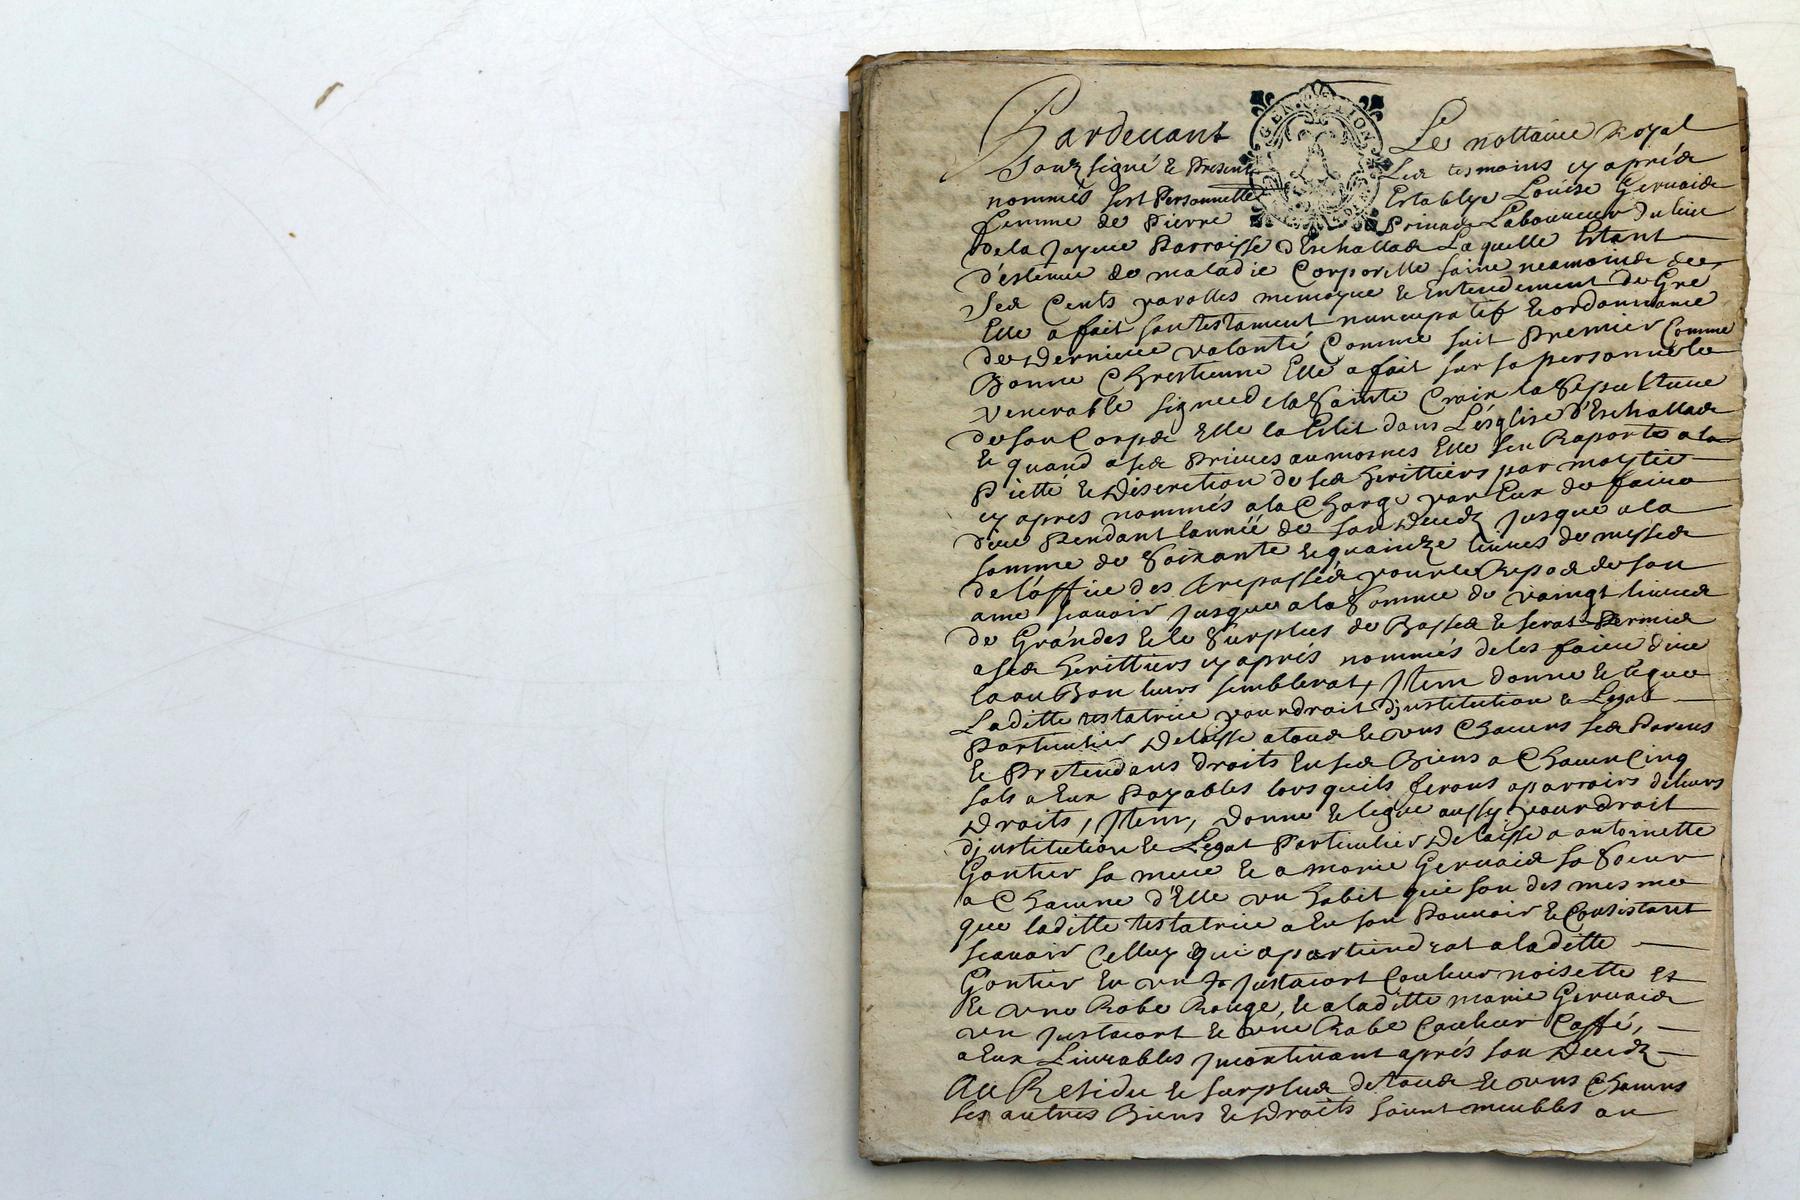 Pardeuant Le nottaire Royal
Soubsigné & Present Les tesmoins cy aprés
nommés fust Personnelle Establye Louise Geruaise
femme de Pierre Laboureur du lieu
de la Parroisse d'Eschallas Laquelle Estant
d'estenue de maladie Corporelle saine neamoins de
Ses Cents parolles memoyre & Entendement de Gré
Elle a fait son testament nuncupatif & ordonnance
de derniere volonté Comme suit Premier Comme
Bonne Chrestienne Elle a fait sur sa personne le
venerable signe de la Sainte Croix la Sepulture
de son Corps Elle la Elit dans L'églize d'Eschallas
& quand a ses Prieres aumosnes Elle sen Raporte a la
Pietté & Discretion de ses heritiers par moytié
cy apres nommés a la Charge par Eux de faire
dire Pendant lannéé de son deceds jusque a la
somme de Soixante & quainze liures de messes
de l'office des trepassés pour le Repos de son
ame scauoir jusques a la Somme de vaingt liures
de Grandes & le Surplus de Basses & serat Permis
a ses herittiers cy aprés nommés de les faire dire
la ou Bon leurs semblerat, Item donne & legue
Laditte testatrice pour droit djnstitution & Legat
Particulier Delaisse a tous & vns Chacuns ses Parens
& Pretendans droits En ses Biens a Chacun Cinq
sols a Eux Payables lorsquils feront aparroirs de leurs
Droits, Item, donne & legue aussy pour droit
djnstitution & Legat Particulier Delaisse a antoinette
Gontier sa mere & a marie Geruais sa Soeur
a Chacune d'Elle vn habit que son des mesme
que laditte testatrice a En son Pouuoir & Consistant
scauoir Celluy qui apartiendrat a laditte
Gontier En vn justacort Couleur noisette Et
& vne Robe Rouge, & a laditte marie Geruais
vn justacort & vne Robe Couleur Caffé,
a Eux Liurables jncontinant aprés son deceds
Au Residu & surplus de tous & vns Chacuns
ses autres Biens & Droits soient meubles ou